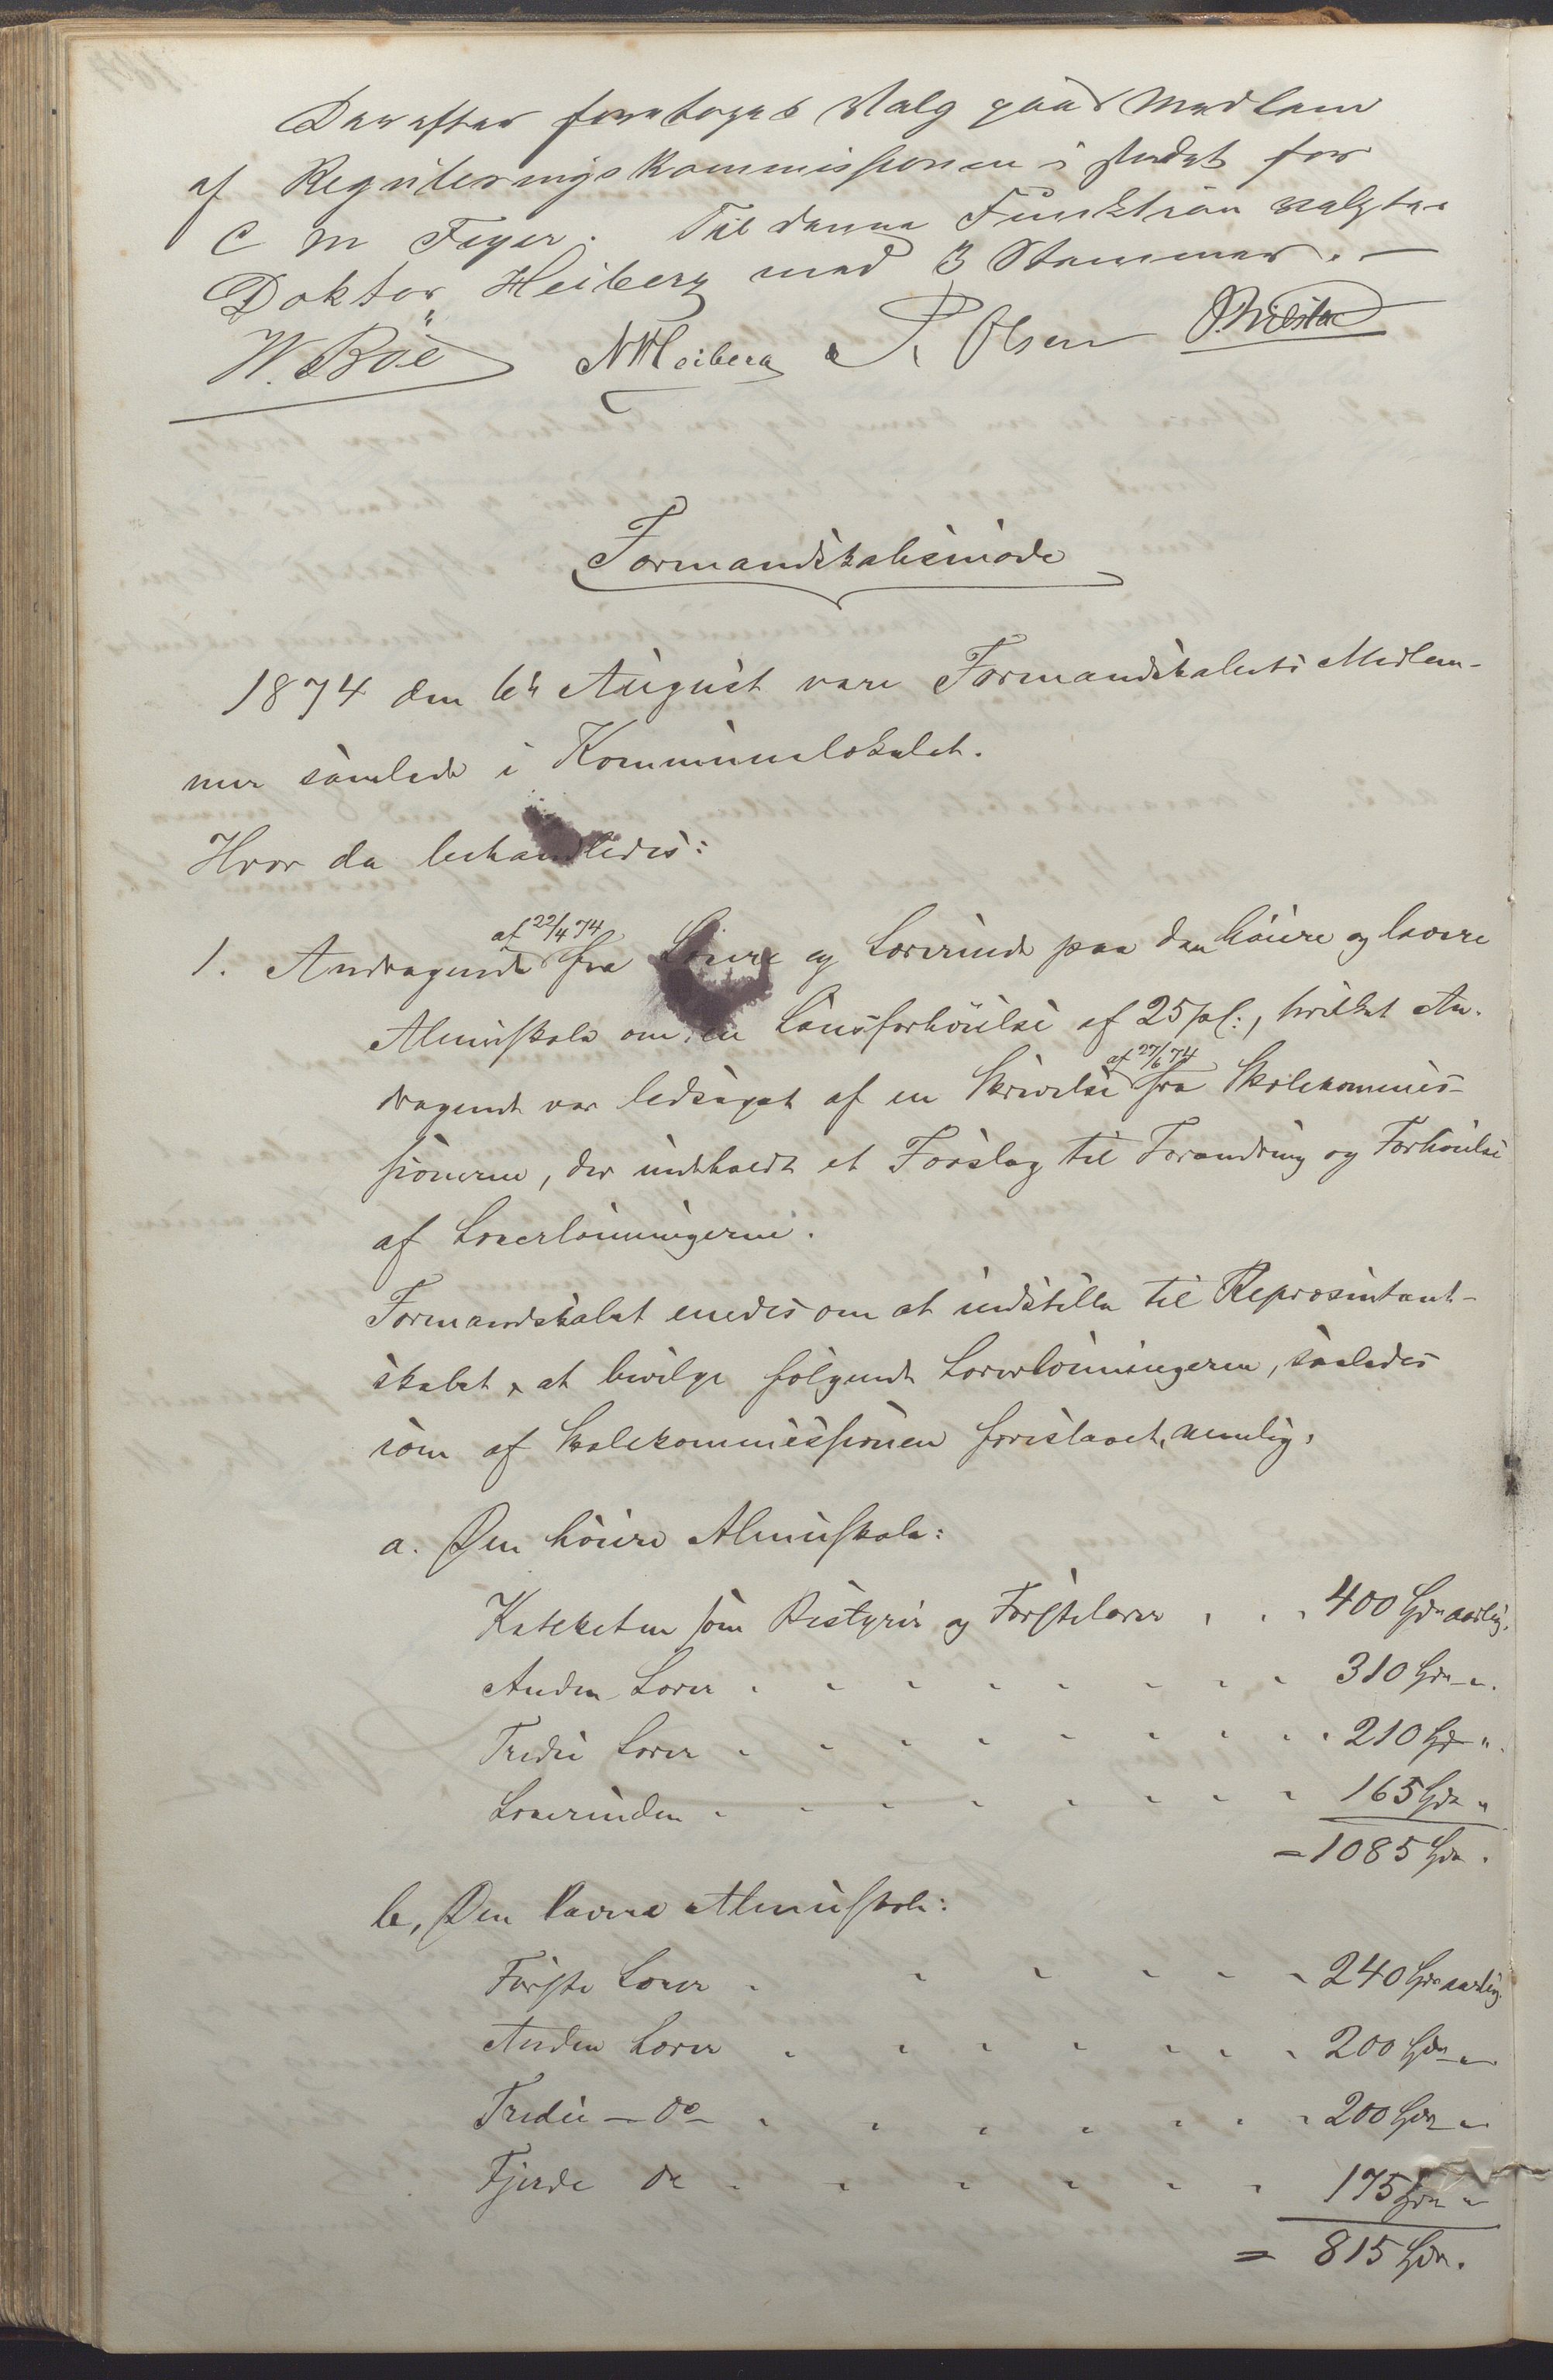 Derefter foretoges Valg paa Medlem
af Reguleringskommissionen i stedet for
C M Feyer. Til denne Funktion valgtes
Doktor Heiberg med 3 Stemmer. —
W. Böe N Heiberg R Olsen
Formandskabsmöde
1874 den 6te August vare Formandskabets Medlem-
mer samlede i Kommunelokalet.
Hvor da behandledes:
af 22/4 74
1. Andragende fra Lærere og Lærerinde paa den höiere og lavere
Almuskole om en Lönsforhöielse af 25 pCt., hvilket An-
af 27/6 74
dragende var ledsaget af en Skrivelse fra Skolekommis-
sionerne, der indeholdt et Forslag til Forandring og Forhöielse
af Lærerlönningerne.
Formandskabet enedes om at indstille til Repræsentant-
skabet, at bevilge fölgende Lærerlönningerne, saaledes
som af Skolekommissionen foreslaaet, nemlig:
a. Den höiere Almuskole:
Kateketen som Bestyrer og Förstelærer . . . 400 Spd aarlig.
Anden Lærer . . . . . . . . 310 Spd "
Tredie Lærer . . . . . . . . 210 Spd "
Lærerinden . . . . . . . . 165 Spd "
= 1085 Spd.
b, Den lavere Almuskole:
Förste Lærer . . . . . . 240 Spd aarlig
Anden Lærer . . . . . . . 200 Spd "
Tredie — do — . . . . . . 200 Spd "
Fjerde do . . . . . . 175 Spd "
= 815 Spd.